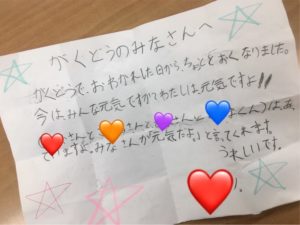 がくどうのみなさんへ
がくどうで、おわかれした日から、ちょっととおくなりました。
今はみんな元気ですか？わたしは元気ですよ!!
さんと さんと さんと くん)は、
ていますよ。みなさんが「元気だよ」と言ってくれます。
うれしいです。